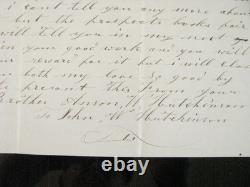 i cant tell you any more about
but the prospects looks fair
will tell you in my next
in your good work and you will
your reward for it but i will close
both my love so good by
the present this From your
Brother Anson W Hutchinson
to John W Hutchinson